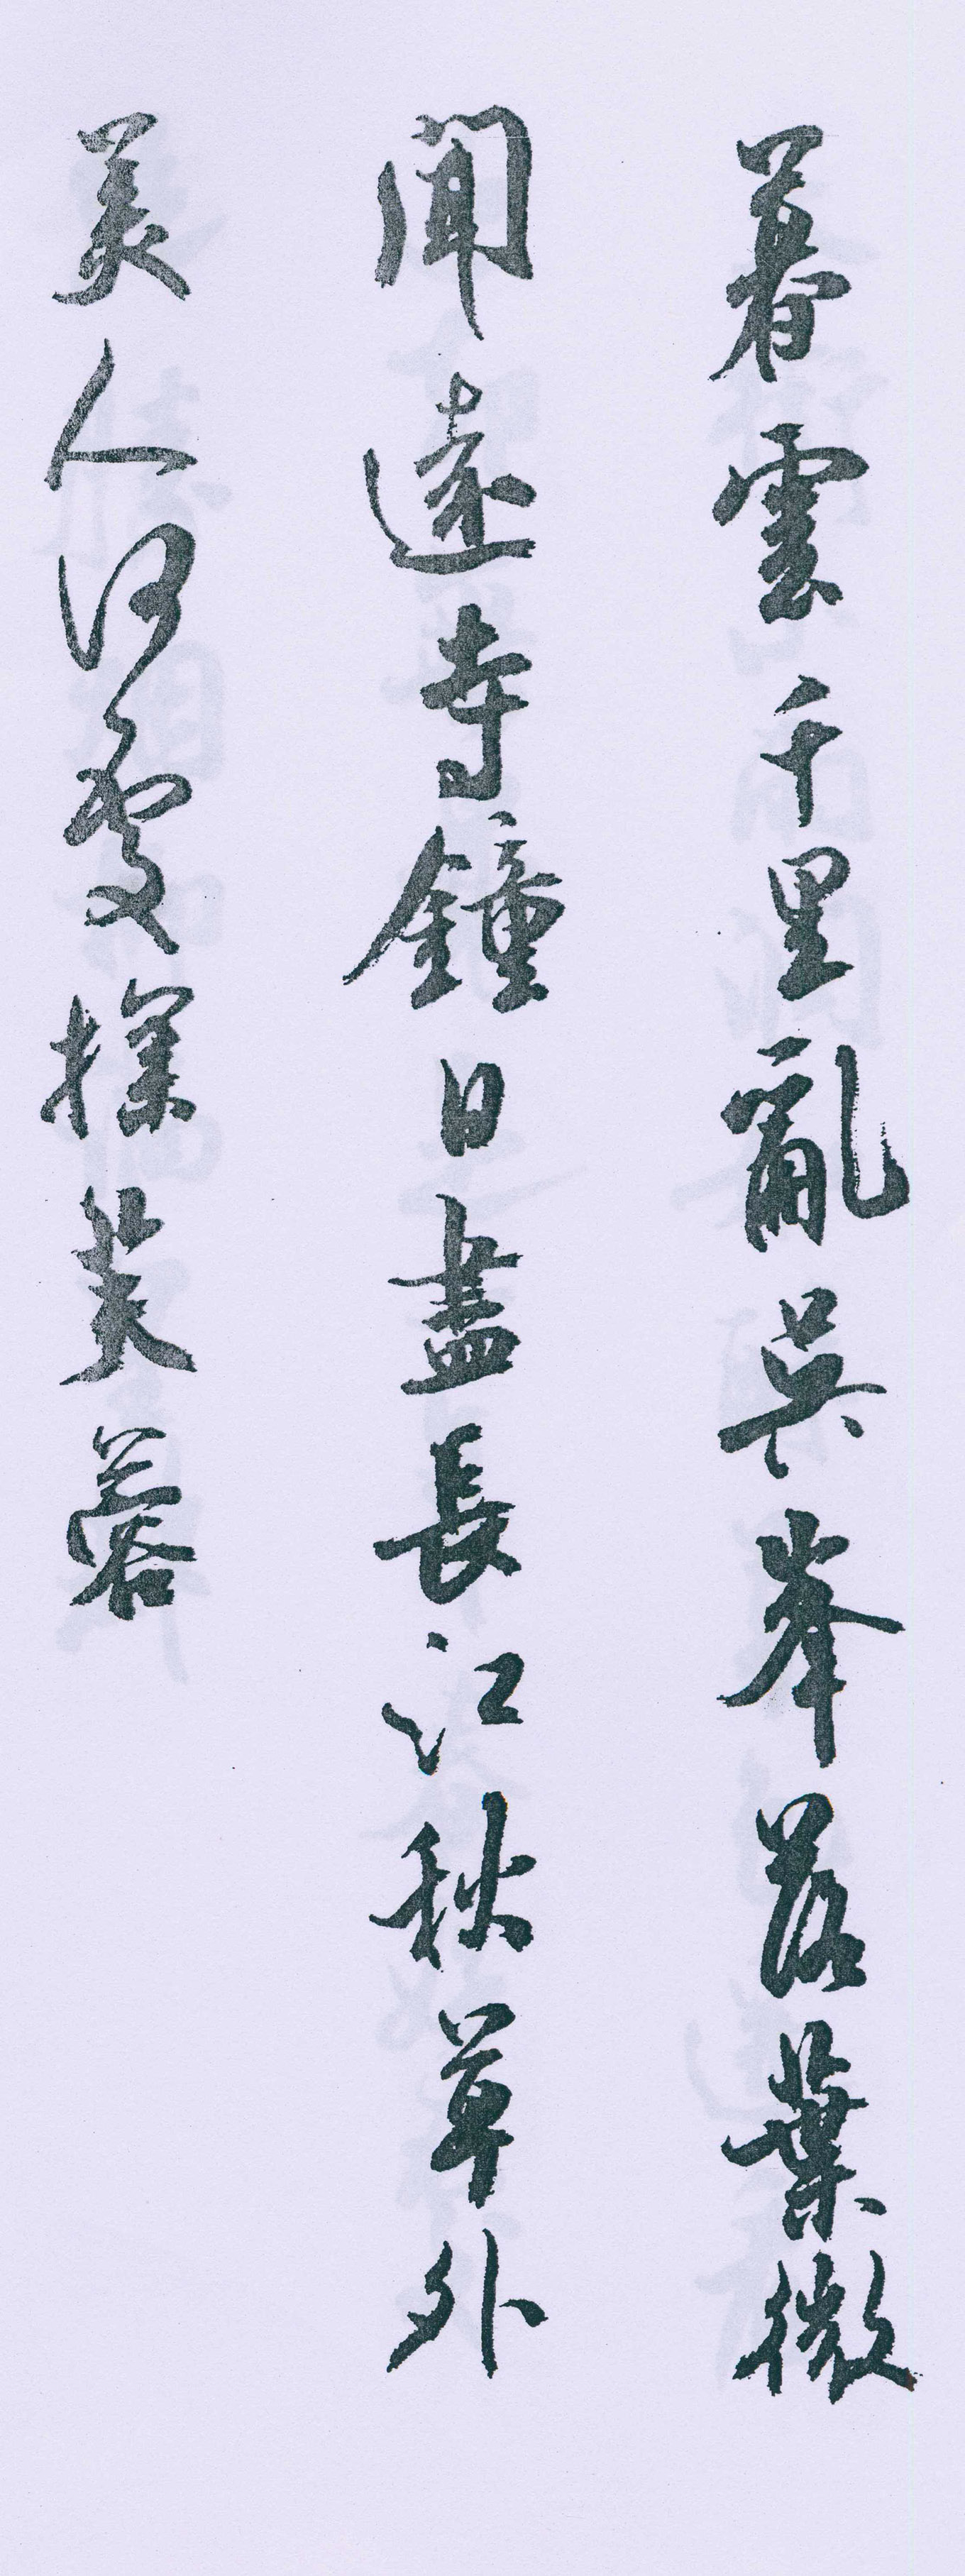 暮雲千里亂吳峯落葉微
聞遠寺鐘日盡長江秋草外
美人何處採芙蓉